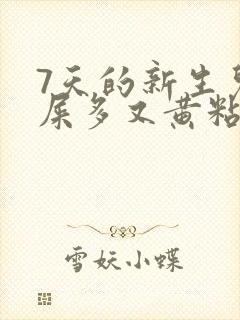 7天的新生
屎多又黄粘
雪妖小蝶